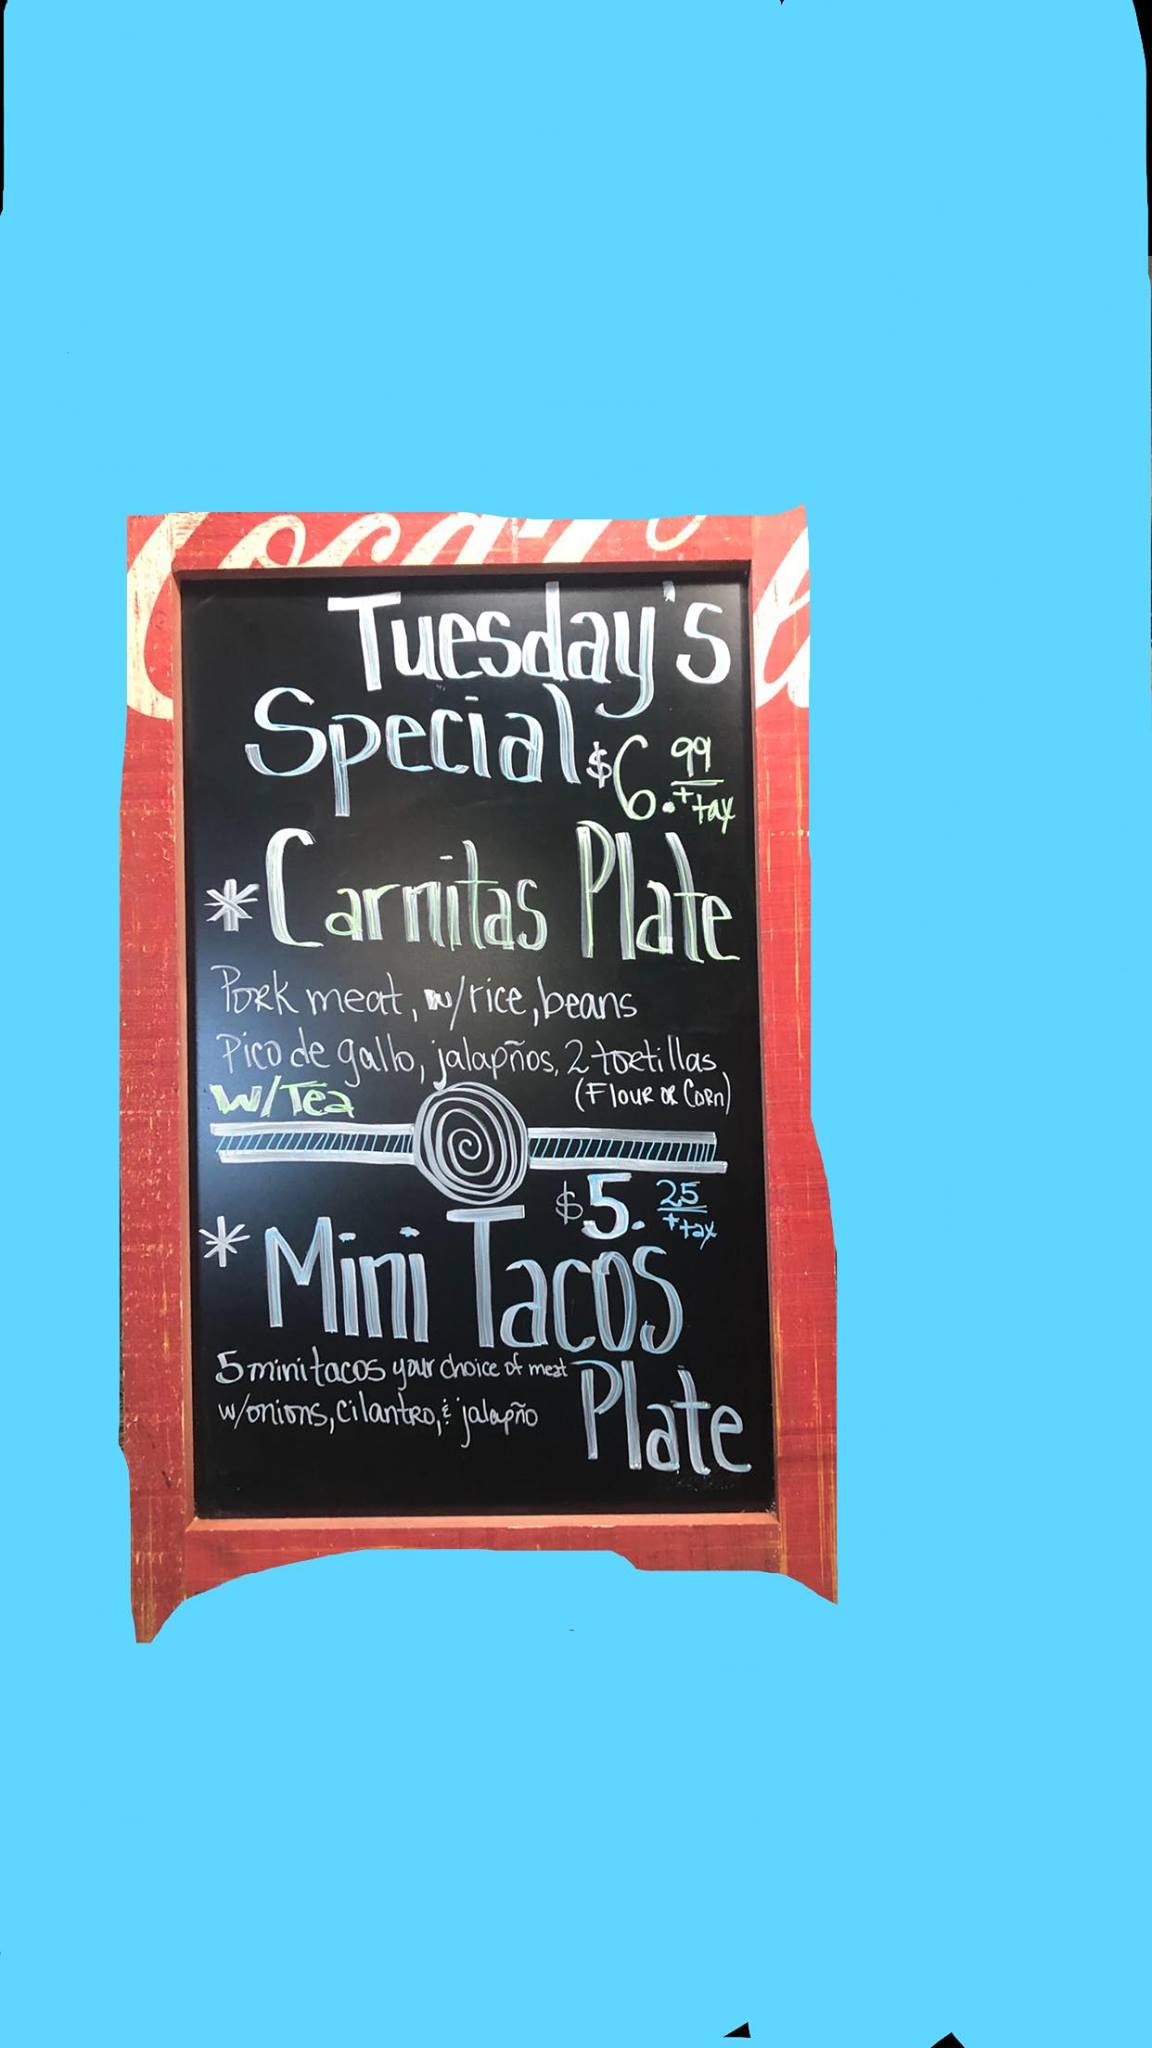 Coca-Cola
Tuesday's
Special
$6.99
+ tax
* Carnitas Plate
Pork meat, w/rice, beans
Pico de gallo, jalapños, 2 tortillas
W/Tea
(Flour or Corn)
$5.25
+ tax
* Mini Tacos
Plate
5 mini tacos your choice of meat
w/onions, cilantro, & jalapño